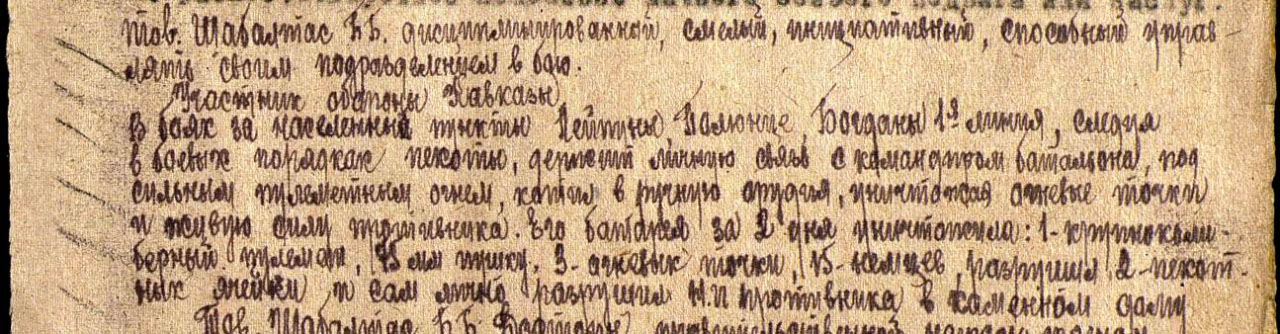 личного боевого подвига или заслуг.
тов. Шабалтас Б.Б. дисциплинированной, смелый, инициативный, способный управ-
лять своим подразделением в бою.
Участник обороны Кавказы
В боях за населенный пункты Богданы 1я линия, следуя
в боевых порядках пехоты, держит личную связь с командиром баталиона, под
сильным пулеметным огнем, катил в ручную орудия, уничтожая огневые точки
и живую силу противника. Его батарея за 2 дня уничтожила: 1-крупнокали-
берный пулемет, 75 мм пушку. 3-огневых точки, 15-немцев, разрушил 2-пехот-
ных ячейки и сам лично разрушил Н.П противника в каменном дому
Тов. Шабалтас Б.Б. Достоин правительственной награды